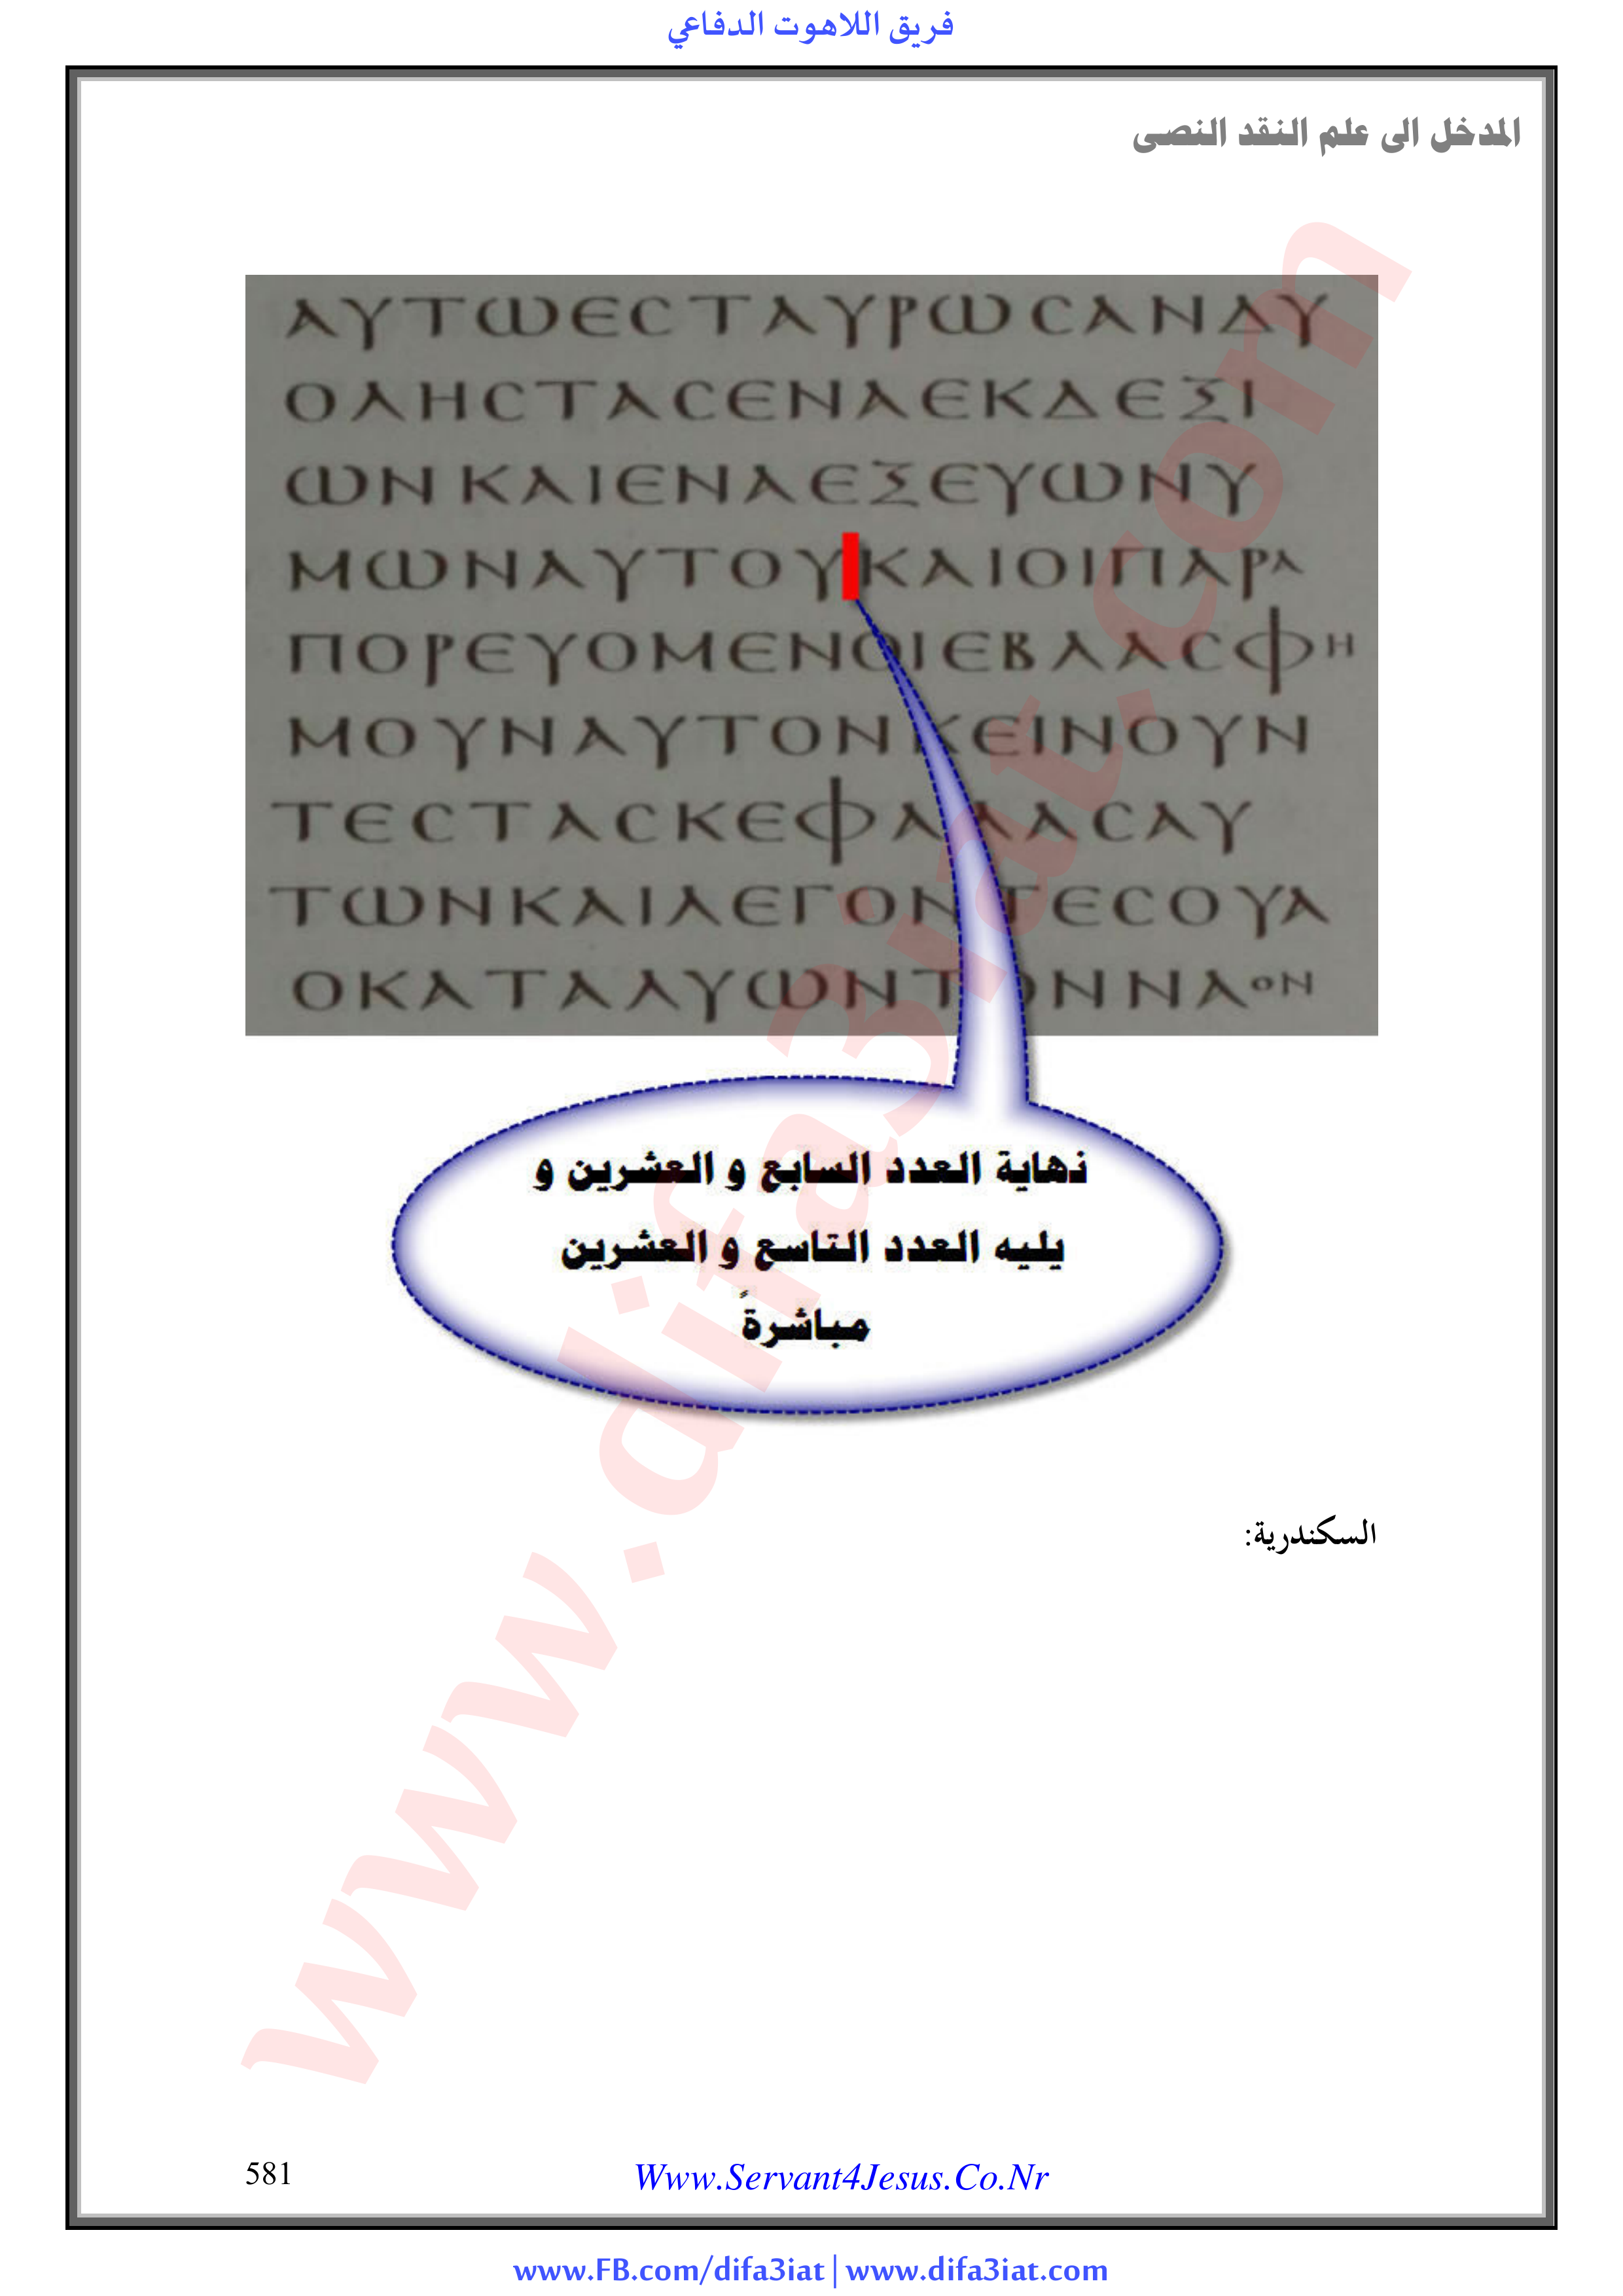 فريق اللاهوت الدفاعي
المدخل الى علم النقد النصى
ΑΥΤΩΕCΤΑΥΡΩCΑΝΔΥ
ΟΛΗCΤΑCΕΝΑΕΚΔΕΞΙ
ΩΝΚΑΙΕΝΑΕΞΕΥΩΝΥ
ΜΩΝΑΥΤΟΥΚΑΙΟΙΠΑΡΑ
ΠΟΡΕΥΟΜΕΝΟΙΕΒΛΑCΦΗ
ΜΟΥΝΑΥΤΟΝΚΕΙΝΟΥΝ
ΤΕCΤΑCΚΕΦΑΛΑCΑΥ
ΤΩΝΚΑΙΛΕΓΟΝΤΕCΟΥΑ
ΟΚΑΤΑΛΥΩΝΤΟΝΝΑΟΝ
نهاية العدد السابع و العشرين و
يليه العدد التاسع و العشرين
مباشرةً
السكندرية:
www.difa3iat.com
581
Www.Servant4Jesus.Co.Nr
www.FB.com/difa3iat | www.difa3iat.com